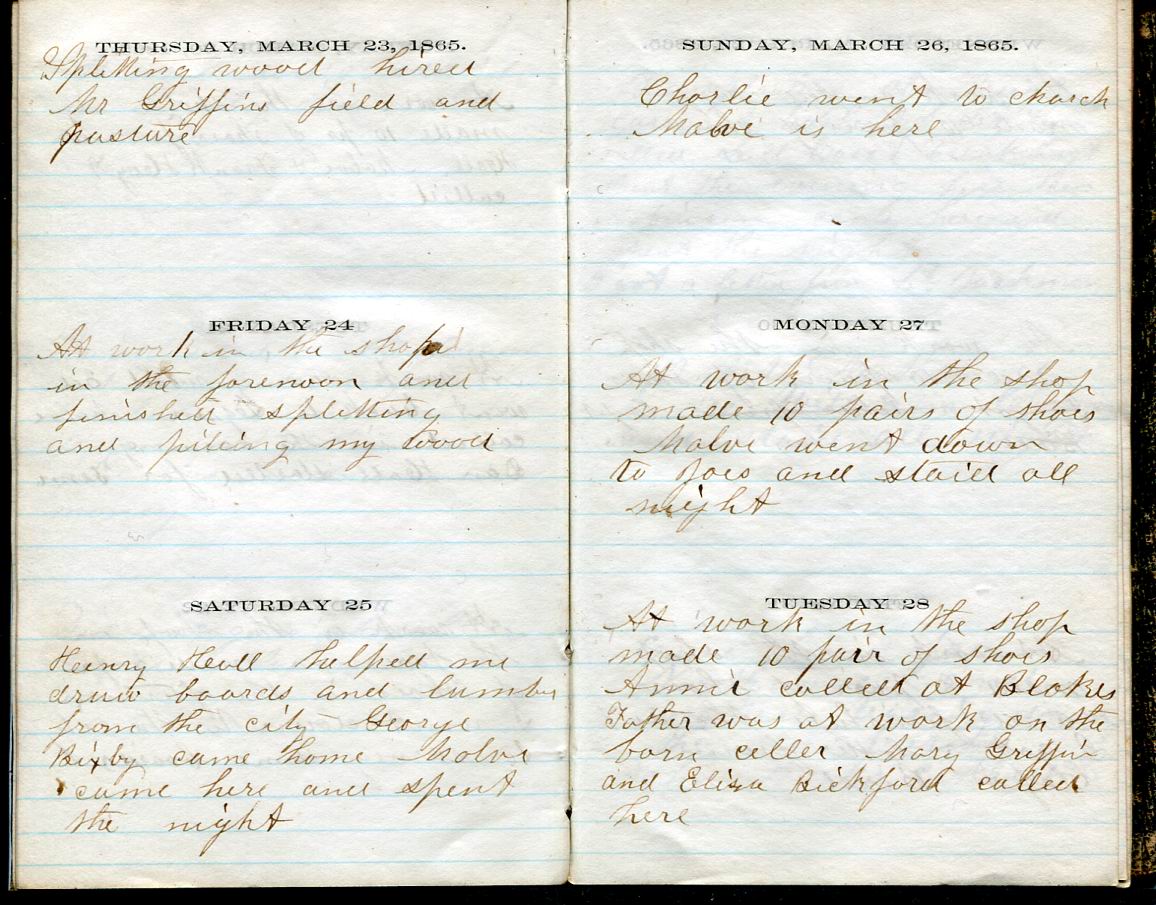 THURSDAY, MARCH 23, 1865.
Splitting wood hired
Mr Griffins field and
pasture
FRIDAY 24
At work in the shop
in the forenoon and
finished splitting
and piling my wood
SATURDAY 25
Henry Hull helped me
draw boards and lumber
from the city George
Bixby came home Malve
came here and spent
the night
SUNDAY, MARCH 26, 1865.
Charlie went to church
Malve is here
MONDAY 27
At work in the shop
made 10 pairs of shoes
Malve went down
to Joes and staid all
night
TUESDAY 28
At work in the shop
made 10 pair of shoes
Annie called at Blakes
Father was at work on the
barn celler Mary Griffin
and Eliza Bickford called
here